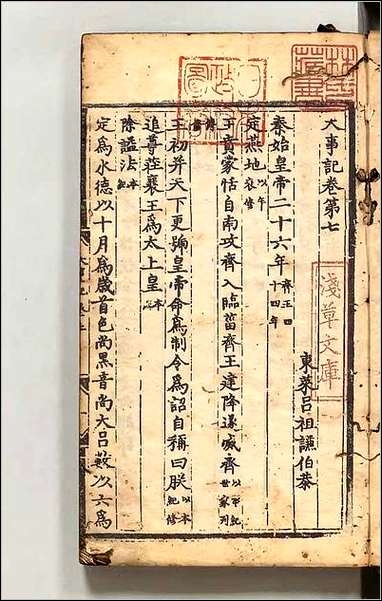 大事記卷第七
東萊呂祖謙伯恭
秦始皇帝二十六年齊王四十四年
定燕地以年表修
王賁蒙恬自南攻齊入臨菑齊王建降遂滅齊以本紀世家列傳修
王初并天下更號皇帝命為制令為詔自稱曰朕以本紀修
追尊莊襄王為太上皇本紀
除謚法本紀
定為水德以十月為歲首色尚黑音尚大呂數以六為
淺草文庫
林氏藏書